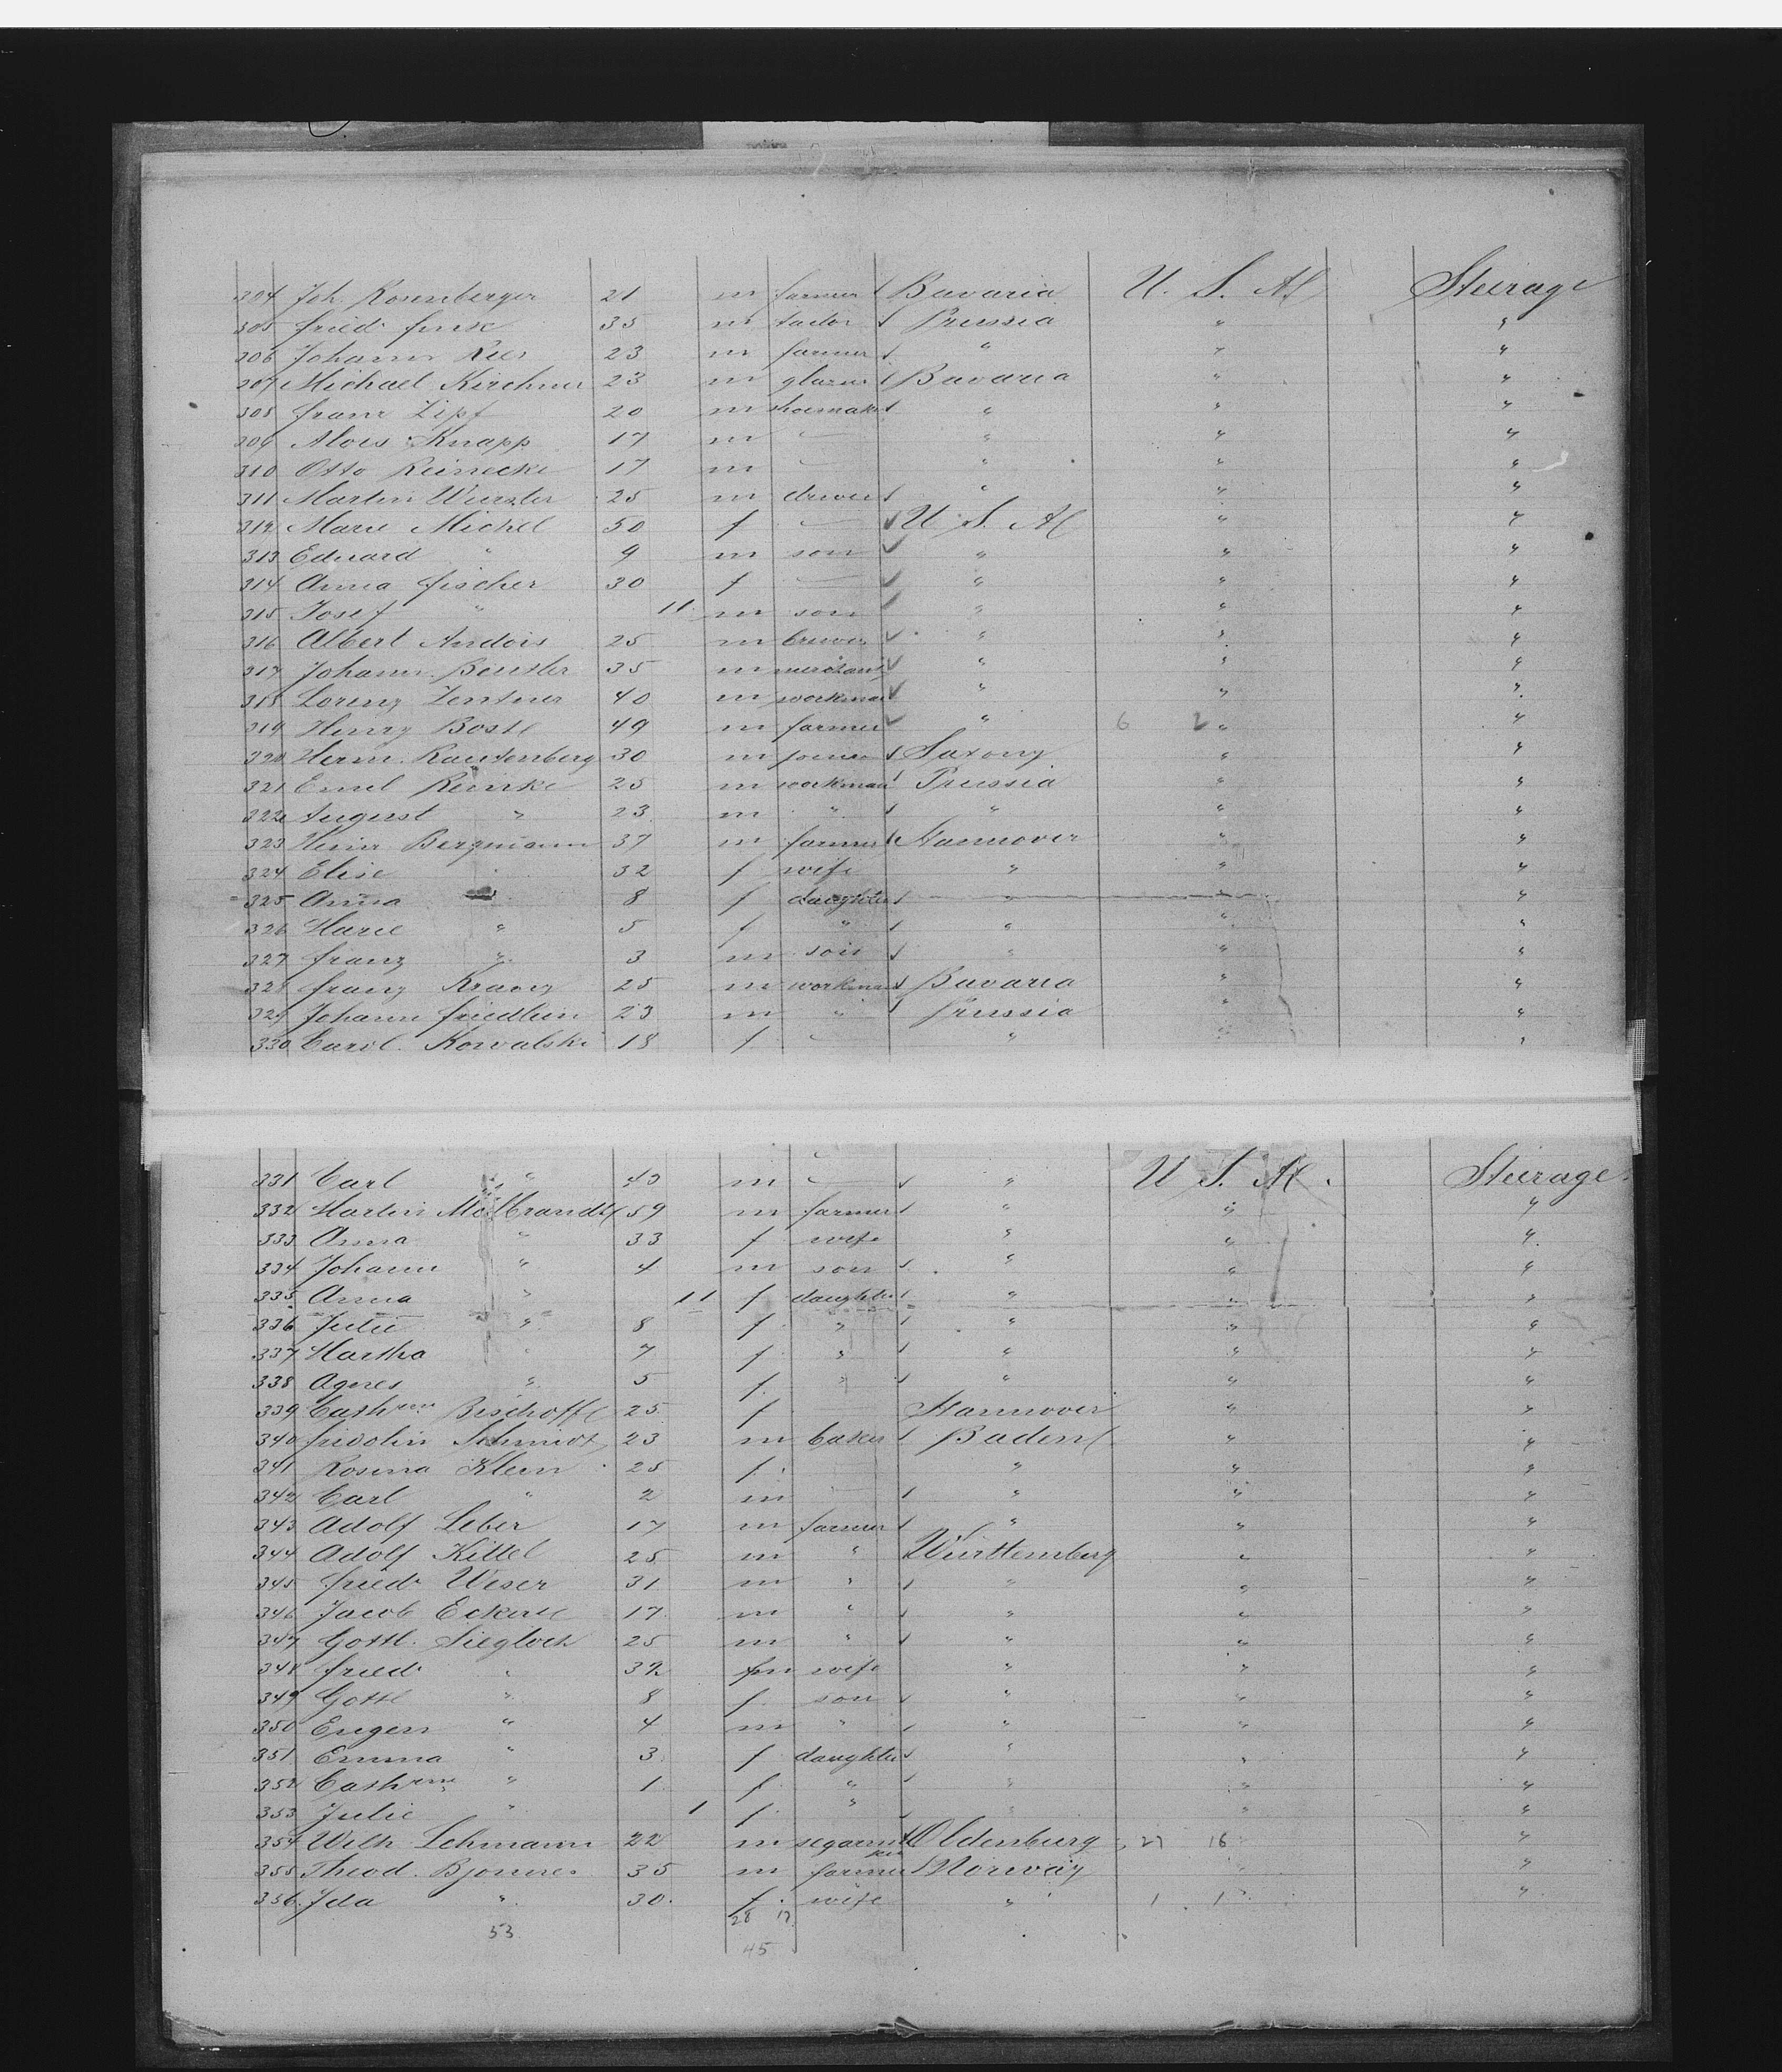 304 Joh. Rosenberger 21 m farmer Bavaria U. S. A Steerage
305 Fried. Funk 35 m tailor Prussia " "
306 Johann Kees 23 m farmer " " "
307 Michael Kirchner 23 m glazier Bavaria " "
308 Franz Zipf 20 m shoemaker " " "
309 Alois Knapp 17 m — " " "
310 Otto Reinecke 17 m — " " "
311 Martin Wurster 25 m " " "
312 Marie Michel 50 f — U. S. A " "
313 Eduard " 9 m son " " "
314 Anna Fischer 30 f — " " "
315 Josef " 11 m son " " "
316 Albert Andois 25 m brewer " " "
317 Johann Beutler 35 m merchant " " "
318 Lorenz Zentner 40 m workman " " "
319 Henry Bost 49 m farmer " 6 2 " "
320 Herm. Rautenberg 30 m joiner Saxony " "
321 Emil Reinke 25 m workman Prussia " "
322 August " 23 m " " " "
323 Heinr Bergmann 37 m farmer Hannover " "
324 Elise " 32 f wife " " "
325 Anna " 8 f daughter " " "
326 Marie " 5 f " " " "
327 Franz " 3 m son " " "
328 Franz 25 m workman Bavaria " "
329 Johann Friedlein 23 m " Prussia " "
330 Carol. Kowalski 18 f " " "
331 Carl " 43 m — " U. S. A. Steerage
332 Martin Mollbrandt 59 m farmer " " "
333 Anna " 33 f wife " " "
334 Johann " 4 m son " " "
335 Anna " 11 f daughter " " "
336 Julie " 8 f " " " "
337 Martha " 7 f " " " "
338 Agnes " 5 f " " " "
339 Cathrine Bischoff 25 f Hannover " "
340 Fridolin Schmidt 23 m baker Baden " "
341 Rosina Klein 25 f. " " "
342 Carl " 2 m — " " "
343 Adolf Leber 17 m farmer " " "
344 Adolf Kittel 25 m " Württemberg " "
345 Friedr Weser 31 m " " " "
346 Jacob Eckert 17 m " " " "
347 Gottl. Siegloch 25 m " " " "
348 Fried. " 32 fm wife " " "
349 Gottl " 8 f. son " " "
350 Eugen " 4 m " " " "
351 Emma " 3 f daughter " " "
352 Cathrine " 1 f " " " "
353 Julie " 1 f. " " " "
354 Wilh. Lehmann 22 m segarmaker Oldenburg 27 16 "
355 Theod. Bjonnes 35 m farmer Norway " "
356 Ida " 30 f. wife " 1 1 "
28 17
53
45